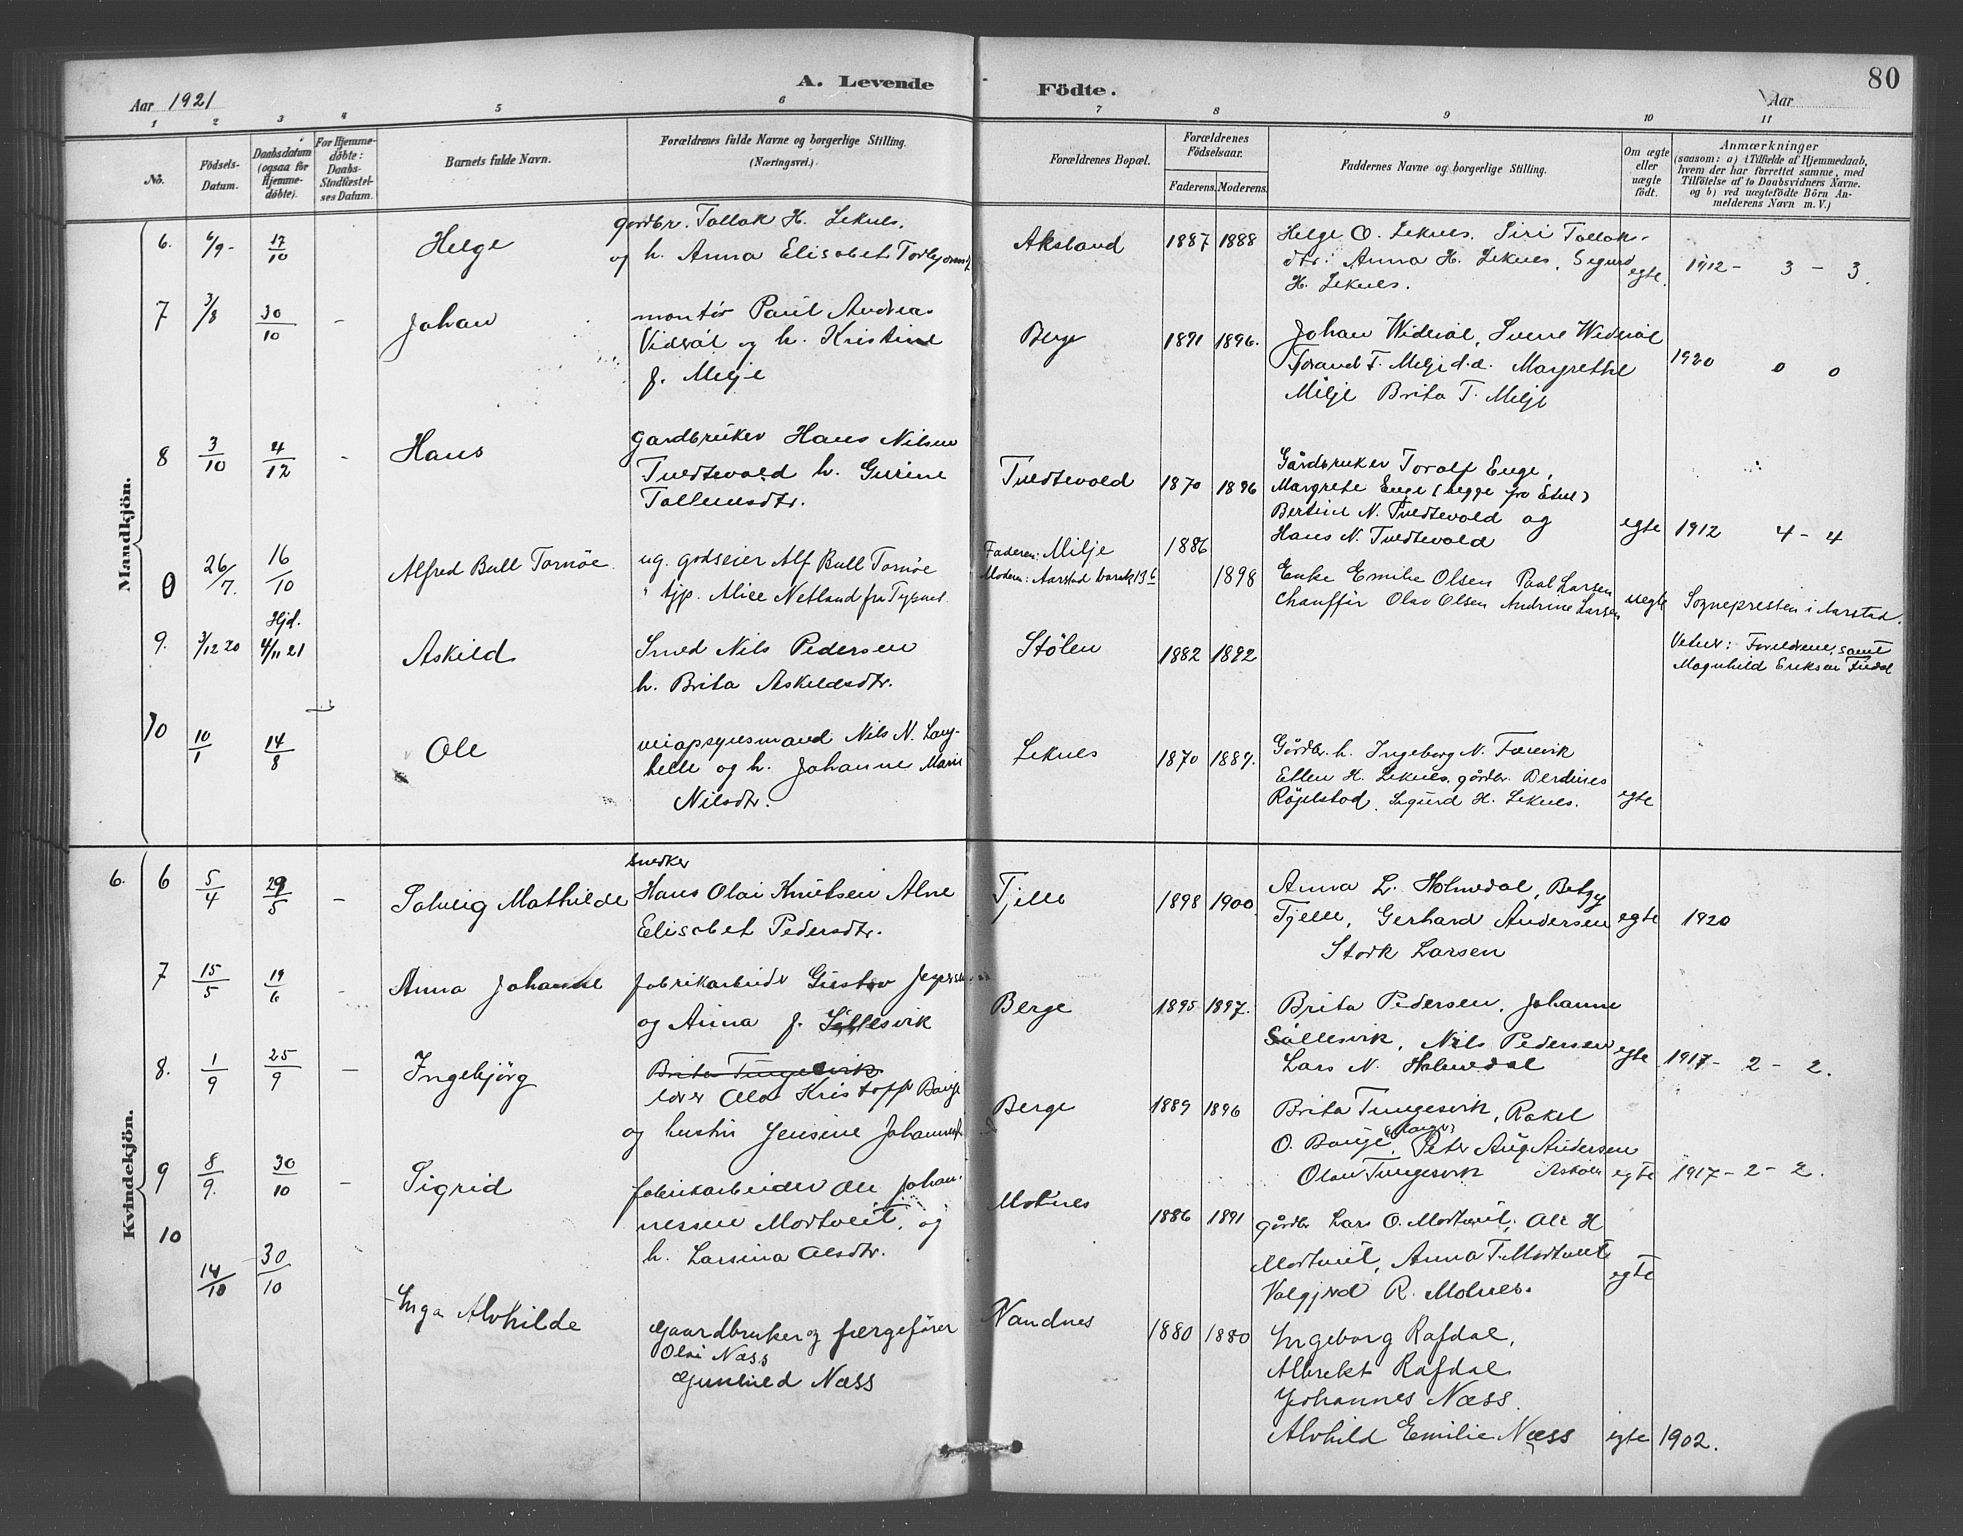 80
A. Levende Födte.
Aar 1921
Aar
1 2 3 4 5 6 7 8 9 10 11
No.
Födsels-
Datum.
Daabsdatum
(ogsaa for
Hjemme-
døbte).
For Hjemme-
døbte:
Daabs-
Stadfæstel-
ses Datum.
Barnets fulde Navn.
Forældrenes fulde Navne og borgerlige Stilling.
(Næringsvei).
Forældrenes Bopæl.
Forældrenes
Födselsaar.
Faderens. Moderens.
Faddernes Navne og borgerlige Stilling.
Om ægte
eller
uægte
födt.
Anmærkninger
(saasom: a) i Tilfælde af Hjemmedaab,
hvem der har forrettet samme, med
Tilföielse af to Daabsvidners Navne.
og b) ved uægtefödte Börn An-
melderens Navn m. V.)
Mandkjön.
6. 6/9- 17/10 Helge
gardbr. Tallak H. Leknes.
og h. Anna Elisabet
Aksland 1887 1888
Helge O. Leknes. Siri Tallaks-
dtr. Anna H. Leknes, Sigurd
H. Leknes.
egte. 1912 - 3 - 3.
7 3/8 30/10 - Johan
montør Paul Andrea
og h. Kristine
f. Milje
Berge 1891 1896.
Johan
Milje d.d. Margrethe
Milje Brita T. Milje
1920 0 0
8 3/10 4/12 - Hans
Gardbruker Hans Nilsen
Tvedtevold h. Gurine
Tollemsdtr.
Tvedtevold 1870 1896
Gårdbruker Toralf Enge,
Margrete Enge (begge fra Etne)
Bertine N. Tvedtevold og
Hans N. Tvedtevold
egte 1912 4 - 4
0 26/7. 16/10 Alfred Bull Tornöe
ug. godseier Alf Bull Tornöe
" tjp. Alice Netland fra Tysnes.
Faderen: Milje 1886
Moderen: Aarstad barak 13 6 1898
Enke Emilie Olsen Paal Larsen
Chauffør Olav Olsen Andrine Larsen
uegte Sognepresten i Aarstad.
9. 3/12 20 Hjd. 4/11 21 Askild
Smed Nils Pedersen
h. Brita Askildsdtr.
Stølen 1882 1892
Vidner: Forældrene, samt
Magnhild Eriksen
10 10/1 14/8 Ole
veiopsynsmand Nils N. Lang-
helle og h. Johanne Marie
Nilsdtr.
Leknes 1870 1889.
Gårdbr. h. Ingeborg N.
Ellen H. Leknes, gårdbr. Berdines
Røjelstad. Sigurd H. Leknes.
egte
Kvindekjön.
6. 6 5/4 29/5 - Solveig Mathilde
snedker
Hans Olai Knutsen Alne
Elisabet Pedersdtr.
Tjelle 1898 1900.
Anna L. Holmedal, Betzy
Tjelle, Gerhard Andersen
Stork Larsen
egte 1920
7 15/5 19/6 - Anna Johanne
fabrikarbeider Gustav
og Anna f. Sillesvik
Berge 1895 1897.
Brita Pedersen, Johanne
Sållesvik, Nils Pedersen
Lars N. Holmedal
egte 1917 - 2 - 2.
8. 1/9 25/9 - Ingebjörg
Brita Tungesvik
lærer Olav Kristoffer Bauge
og hustru Jensine
Berge 1889 1896
Brita Tungesvik, Rakel
O. Bauge, Peter Aug Andersen
Olav Tungesvik Asköen
egte 1917 - 2 - 2.
9 8/9. 30/10 - Sigrid
fabrikarbeider Ole Johan-
nessen Mortveit, og
h. Larsina Olsdtr.
Molnes 1886 1891
gårdbr Lars O. Mortveit, Ole H
Mortveit, Anna T. Mortveit
Valgjerd R. Molnes.
egte
10 14/10 30/10 Inga Alvhilde
Gaardbruker og færgefører
Olai Næss
Gunhild Næss
Nandnes 1880 1880
Ingeborg Rafdal,
Albrekt Rafdal
Johannes Næss.
Alvhild Emilie Næss
egte 1902.